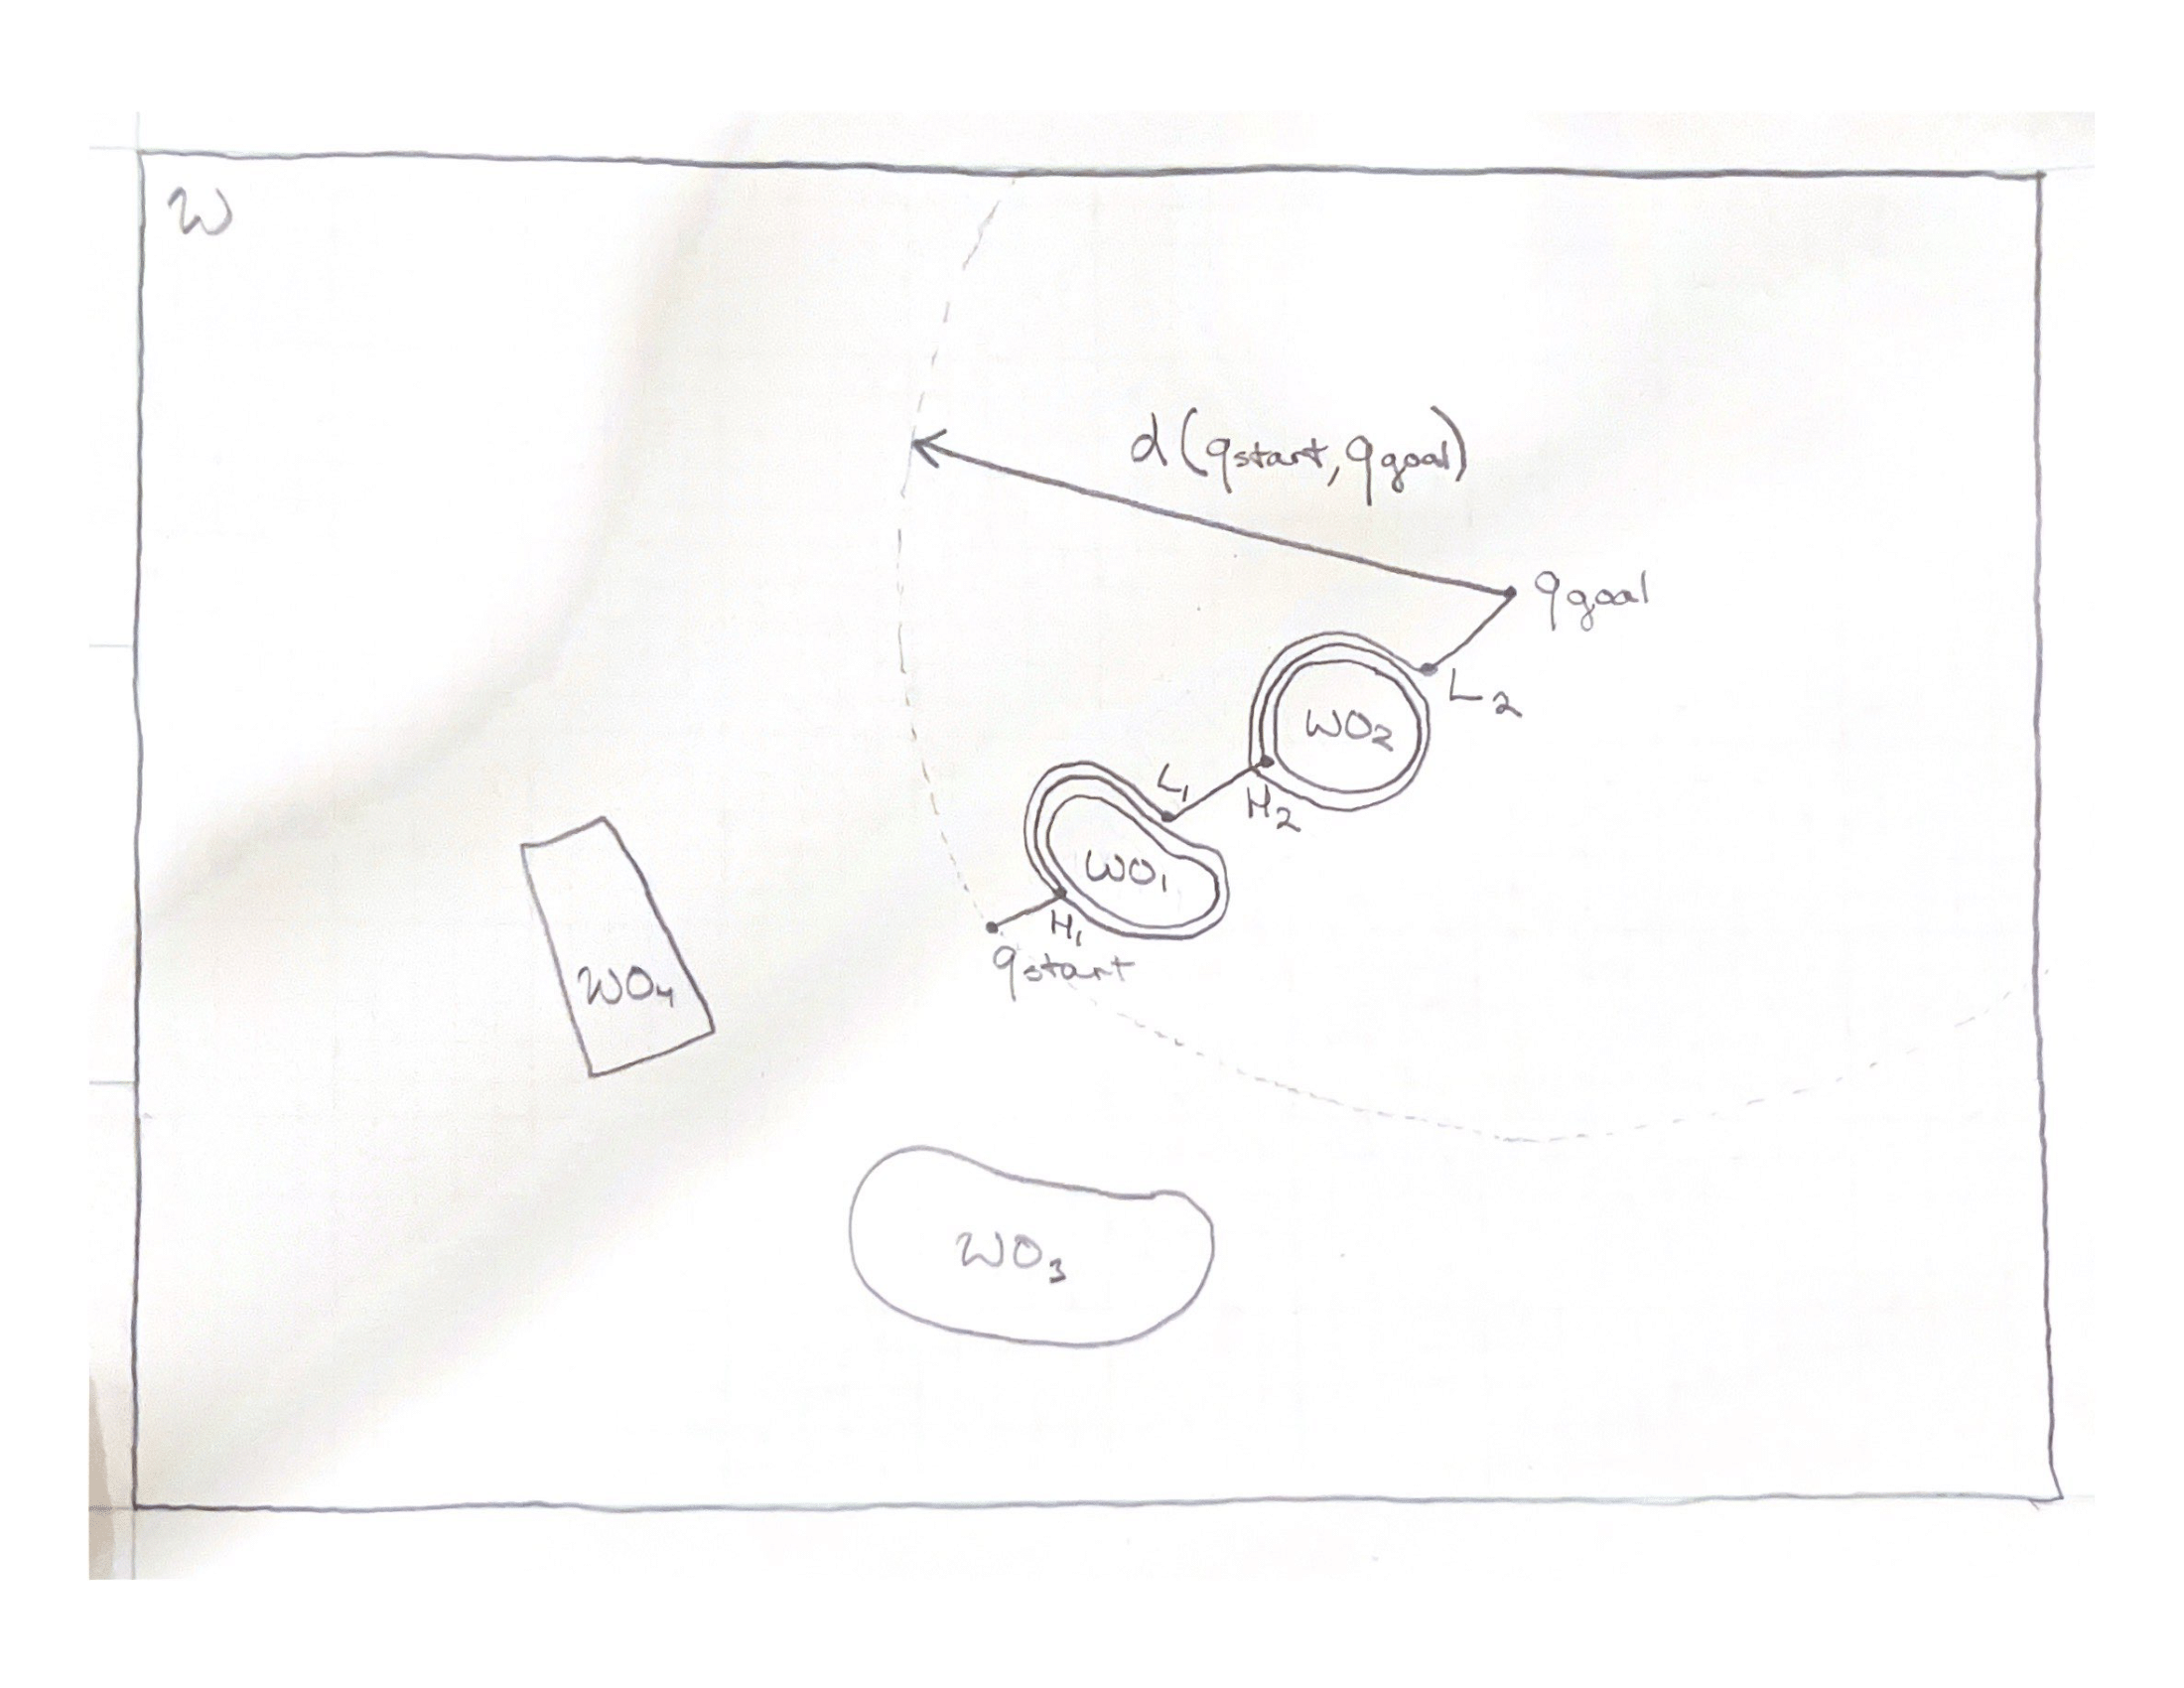 W
d(qstart, qgoal)
qgoal
L2
WO2
L1
H2
WO1
H1
qstart
WO4
WO3